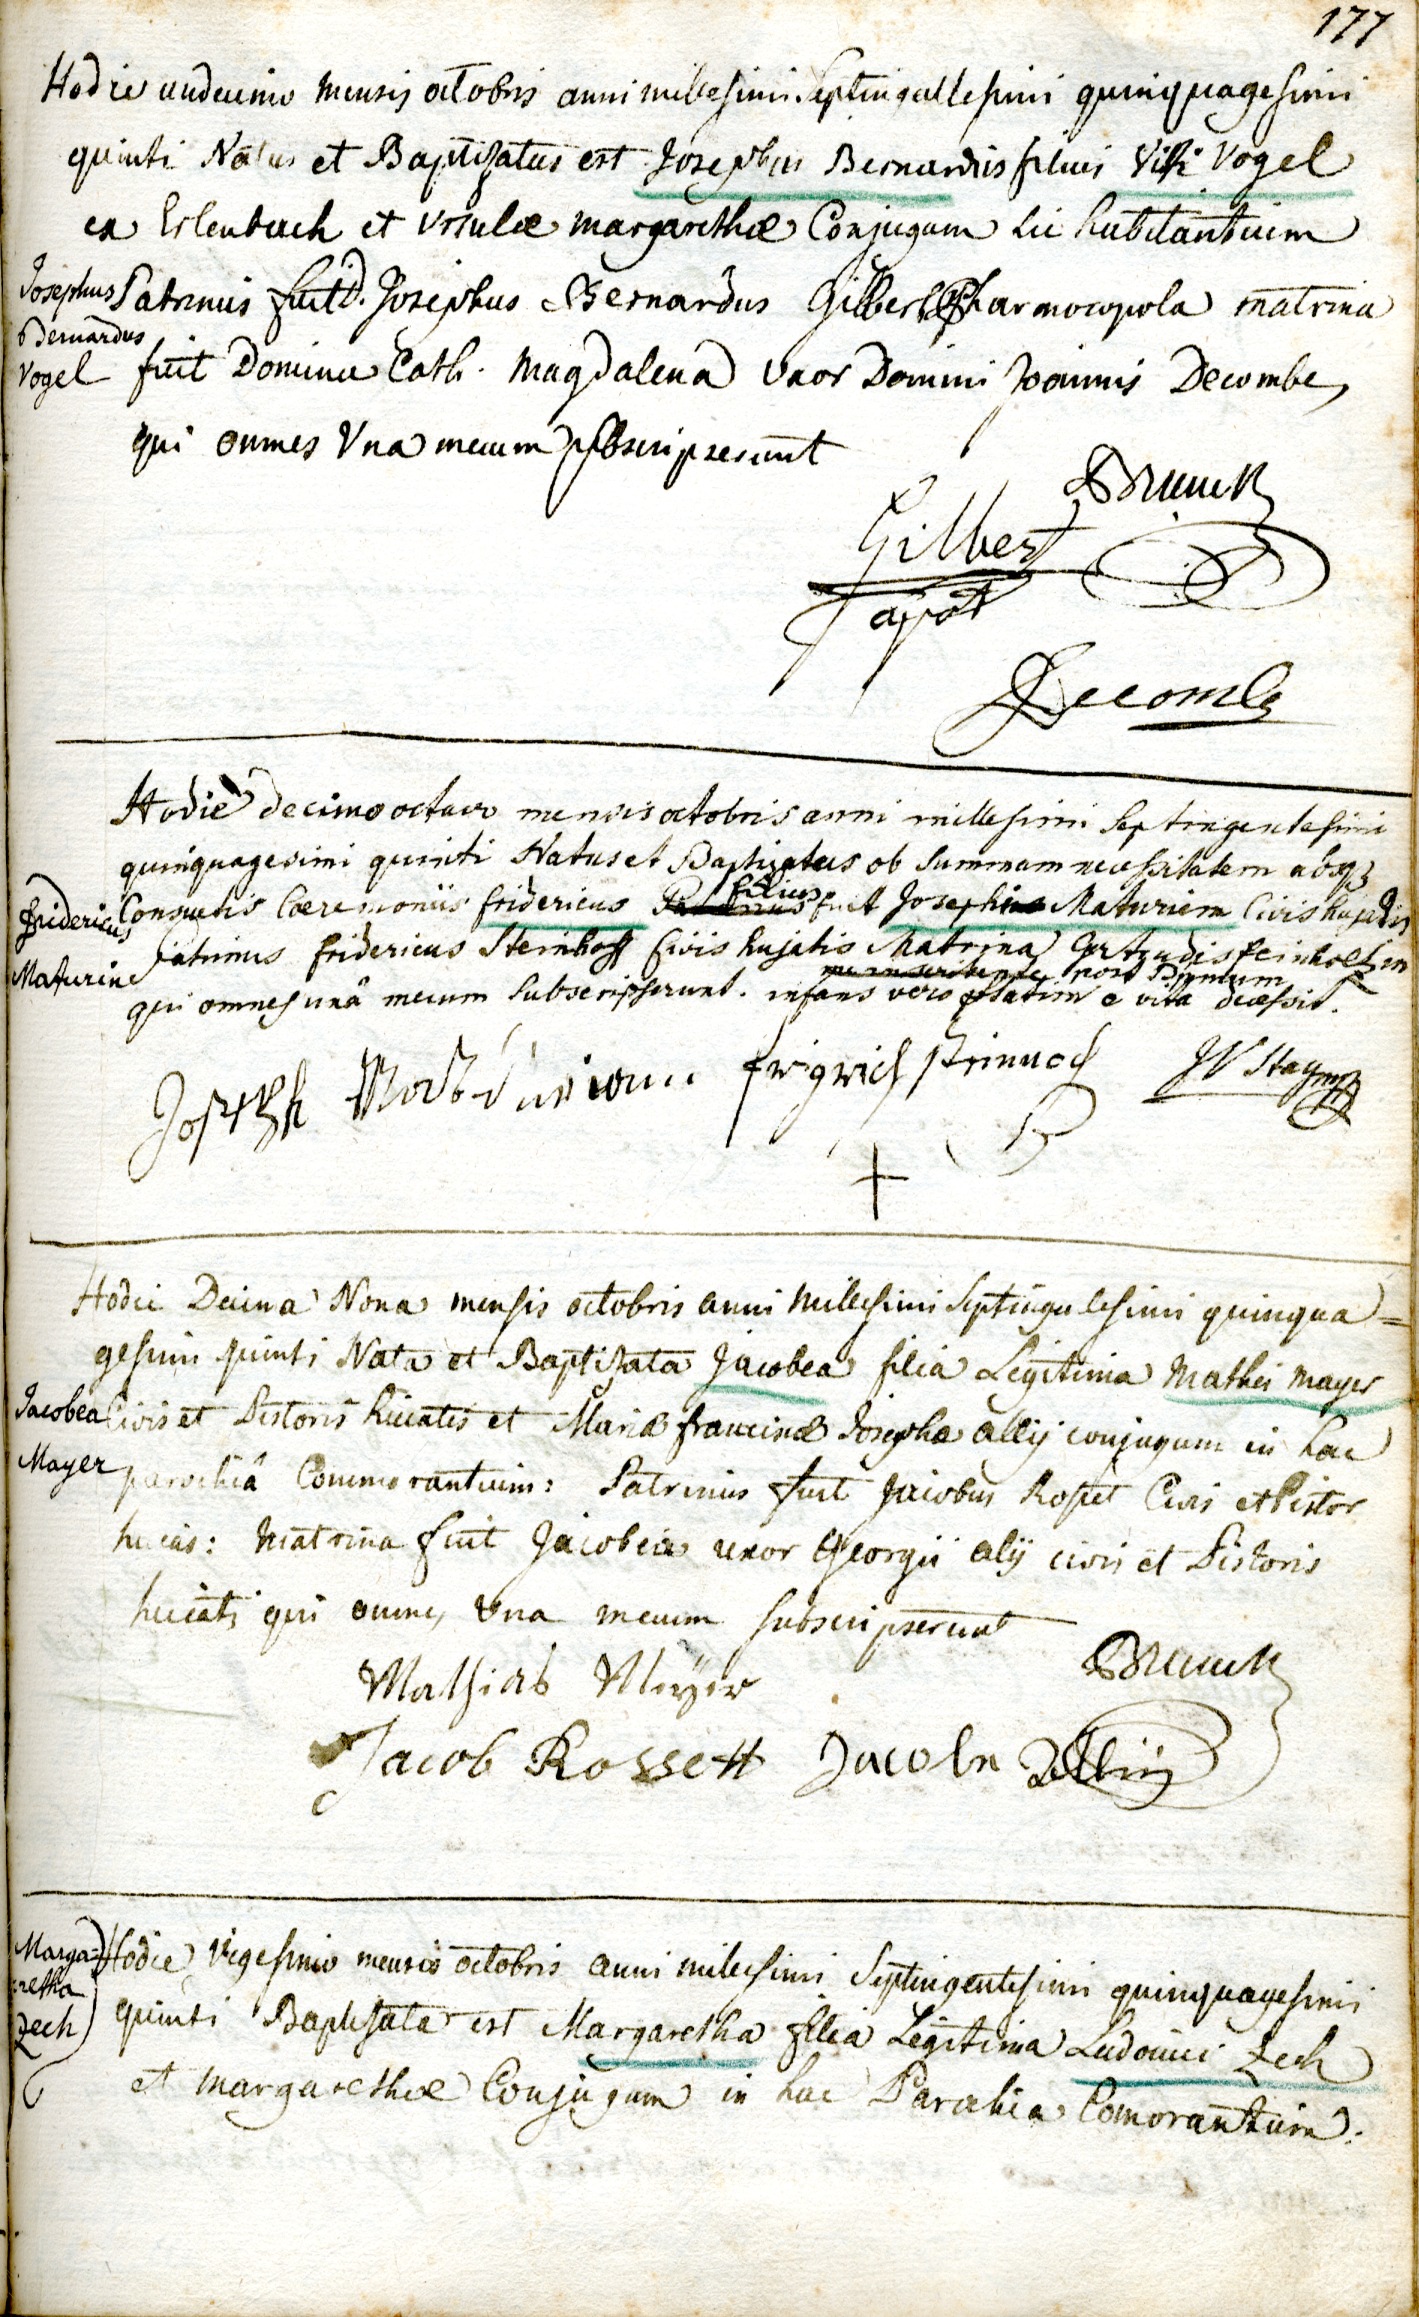 177
Hodie undecimo mensis octobris anni millesimi Septingentesimi quinquagesimi
quinti Natus et Baptizatus est Josephus Bernardus filius Viti Vogel
ex Erlenbach et Ursulæ margarethæ Conjugum hic habitantium
Josephus Bernardus Vogel
Patrinus fuit d. Josephus Bernardus Gilbert Pharmocopola matrina
fuit Domina Cath. Magdalena Uxor Domini Joannis Decombe,
qui omnes Una mecum subscripserunt
Brunck
Gilbert
apot
Decombe
Hodie decimo octavo mensis octobris anni millesimi Septingentesimi
quinquagesimi quinti Natus et Baptizatus ob summam necessitatem absq;
Fridericus Maturine
Consuetis Cæremoniis fridericus filius fuit Josephi Maturiem Civis hujatis
Patrinus fridericus Steinhoff Civis hujatis Matrina Gertrudis steinholtzin
qui omnes unâ mecum subscripserunt. infans vero statim post Bismum e vita decessit.
Joseph
JV Stag
Hodie Decima Nona mensis octobris anni Millesimi Septingentesimi quinqua=
gesimi quinti Nata et Baptizata Jacobea filia Legitima Mathei mayer
Jacobea Mayer
Civis et Pistoris huiatis et Mariæ francinæ Josephæ allÿ conjugum in hac
parochiâ Commorantium: Patrinus fuit Jacobus Roset Civis et Pistor
huias: Matrina fuit Jacobea uxor Georgii alÿ civis et Pistoris
huiatis qui omnes Una mecum subscripserunt
Brunck
Mathias Meÿer
Jacob Rossett Jacobe
Marga=
retha
Zech
Hodie Vigesimo mensis octobris anni millesimi Septingentesimi quinquagesimi
quinti Baptisata est Margaretha filia Legitima Ludovici Zech
et margarethæ Conjugum in hac Parochia Comorantium.